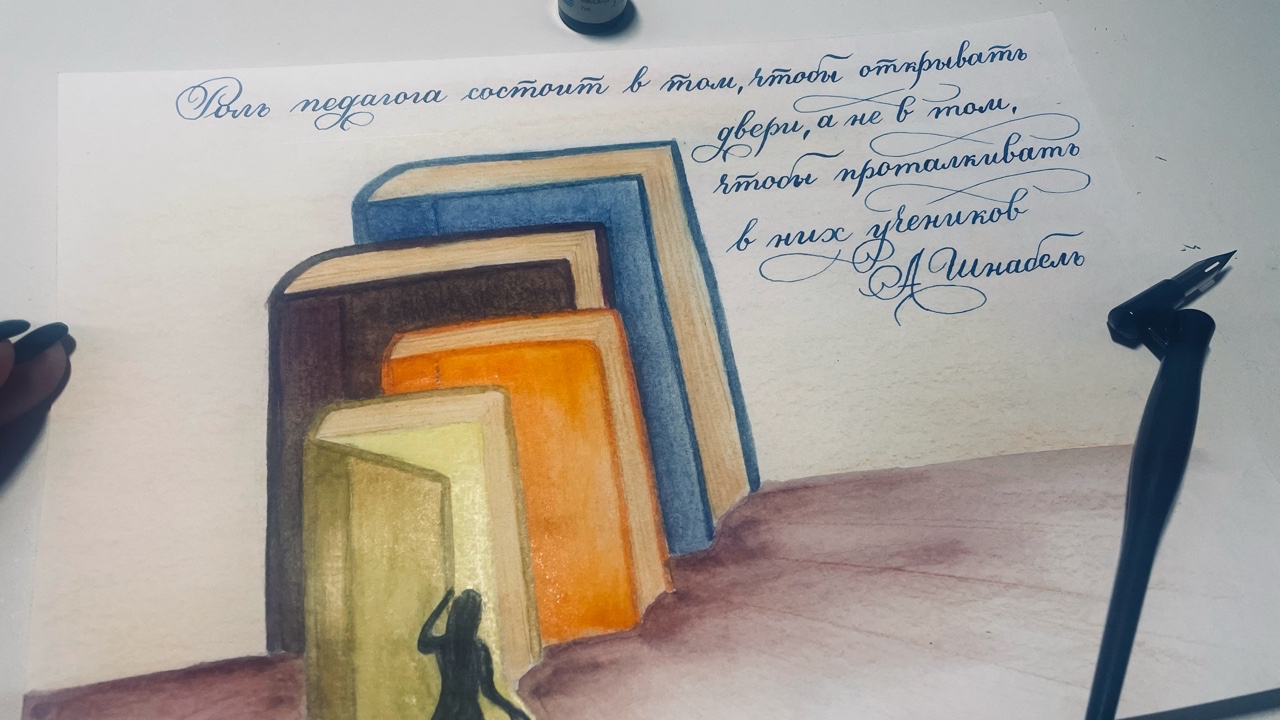 Роль педагога состоит в том, чтобы открывать
двери, а не в том,
чтобы проталкивать
в них учеников
А Шнабель